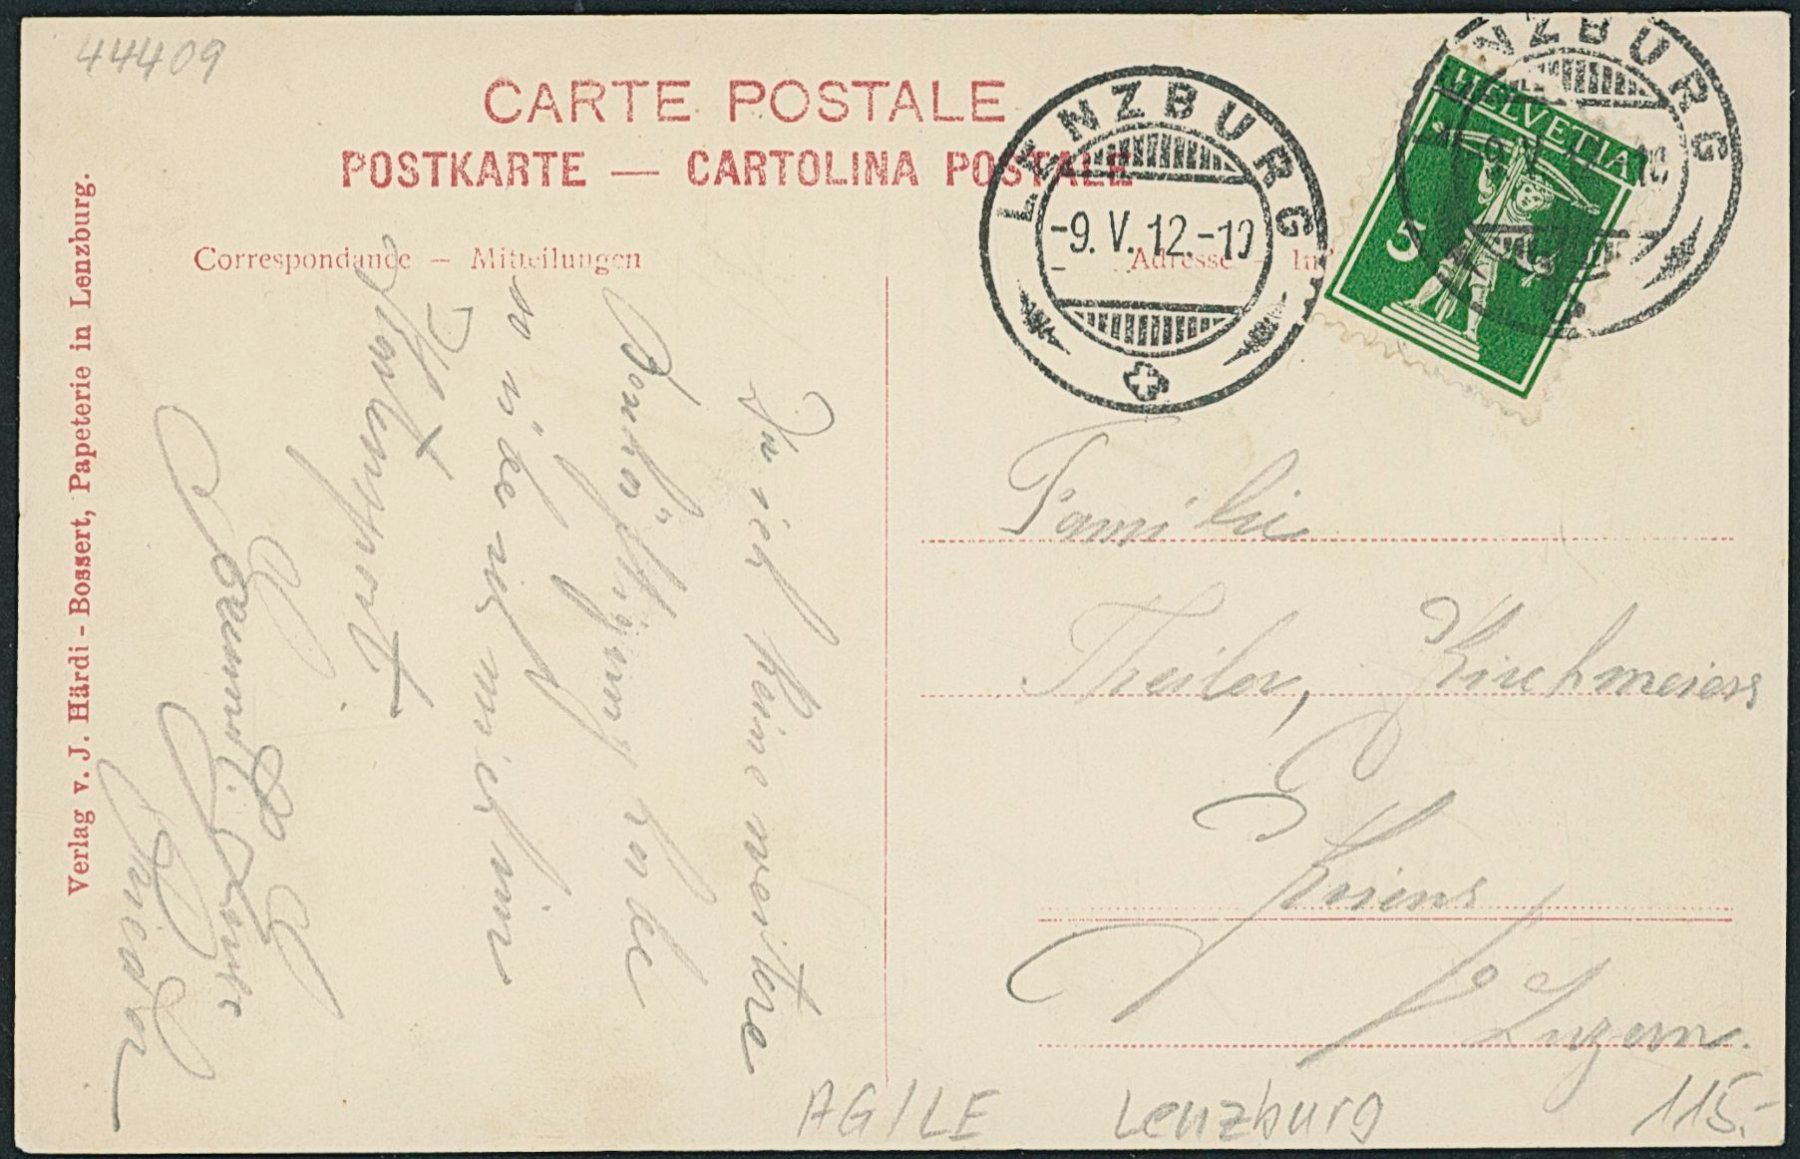 44409
CARTE POSTALE
POSTKARTE — CARTOLINA POSTALE
Correspondance — Mitteilungen
Adresse —
LENZBURG
-9. V. 12.-10
NZBURG
HELVETIA
5
Verlag v. J. Härdi - Bossert, Papeterie in Lenzburg.
Da ich keine weitere
Beschäftigung habe
so übe ich mich im
Kartensport.
Familie
Theiler,
Kriens
Luzern.
AG/LE Lenzburg 115.-